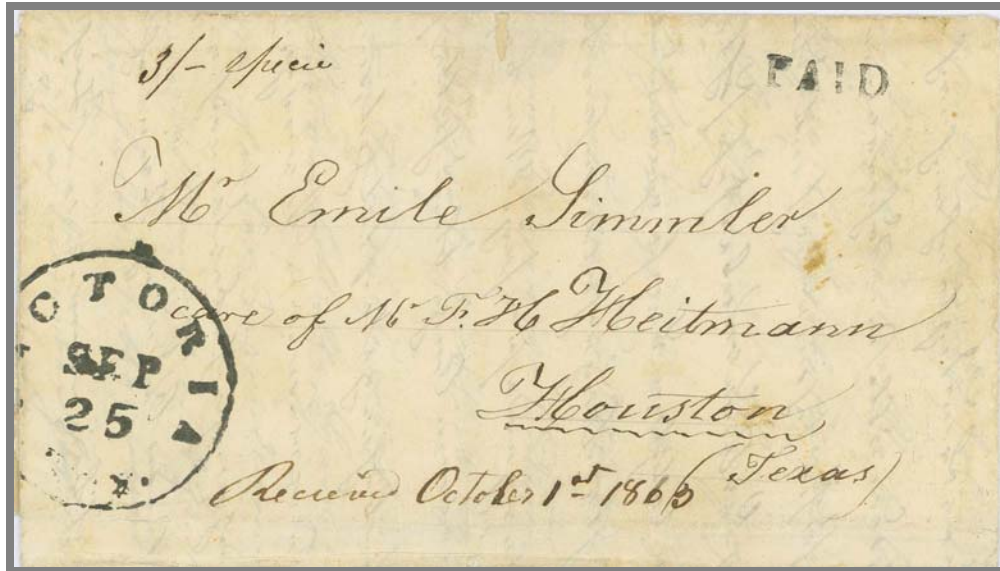 3/- specie
PAID
Mr Emile Simmler
care of Mr F. H Heitmann
Houston
(Texas)
Received October 1st 1863
CTORIA
SEP
25